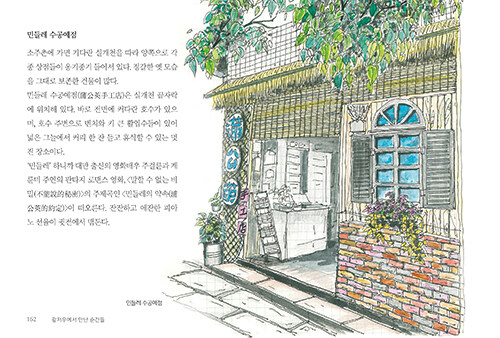 민들레 수공예점
소주촌에 가면 기다란 실개천을 따라 양쪽으로 각
종 상점들이 옹기종기 들어서 있다. 정감한 옛 모습
을 그대로 보존한 건물이 많다.
민들레 수공예점(蒲公英手工店)은 실개천 끝자락
에 위치해 있다. 바로 전면에 커다란 호수가 있으
며, 호수 주변으로 벤치와 키 큰 활엽수들이 있어
넓은 그늘에서 커피 한 잔 들고 휴식할 수 있는 멋
진 장소이다.
‘민들레’ 하니까 대만 출신의 영화배우 주걸륜과 계
륜미 주연의 판타지 로맨스 영화, 〈말할 수 없는 비
밀(不能說的秘密)〉의 주제곡인 〈민들레의 약속(蒲
公英的約定)〉이 떠오른다. 잔잔하고 애잔한 피아
노 선율이 귓전에서 맴돈다.
蒲公英
手工店
민들레 수공예점
162 광저우에서 만난 순간들